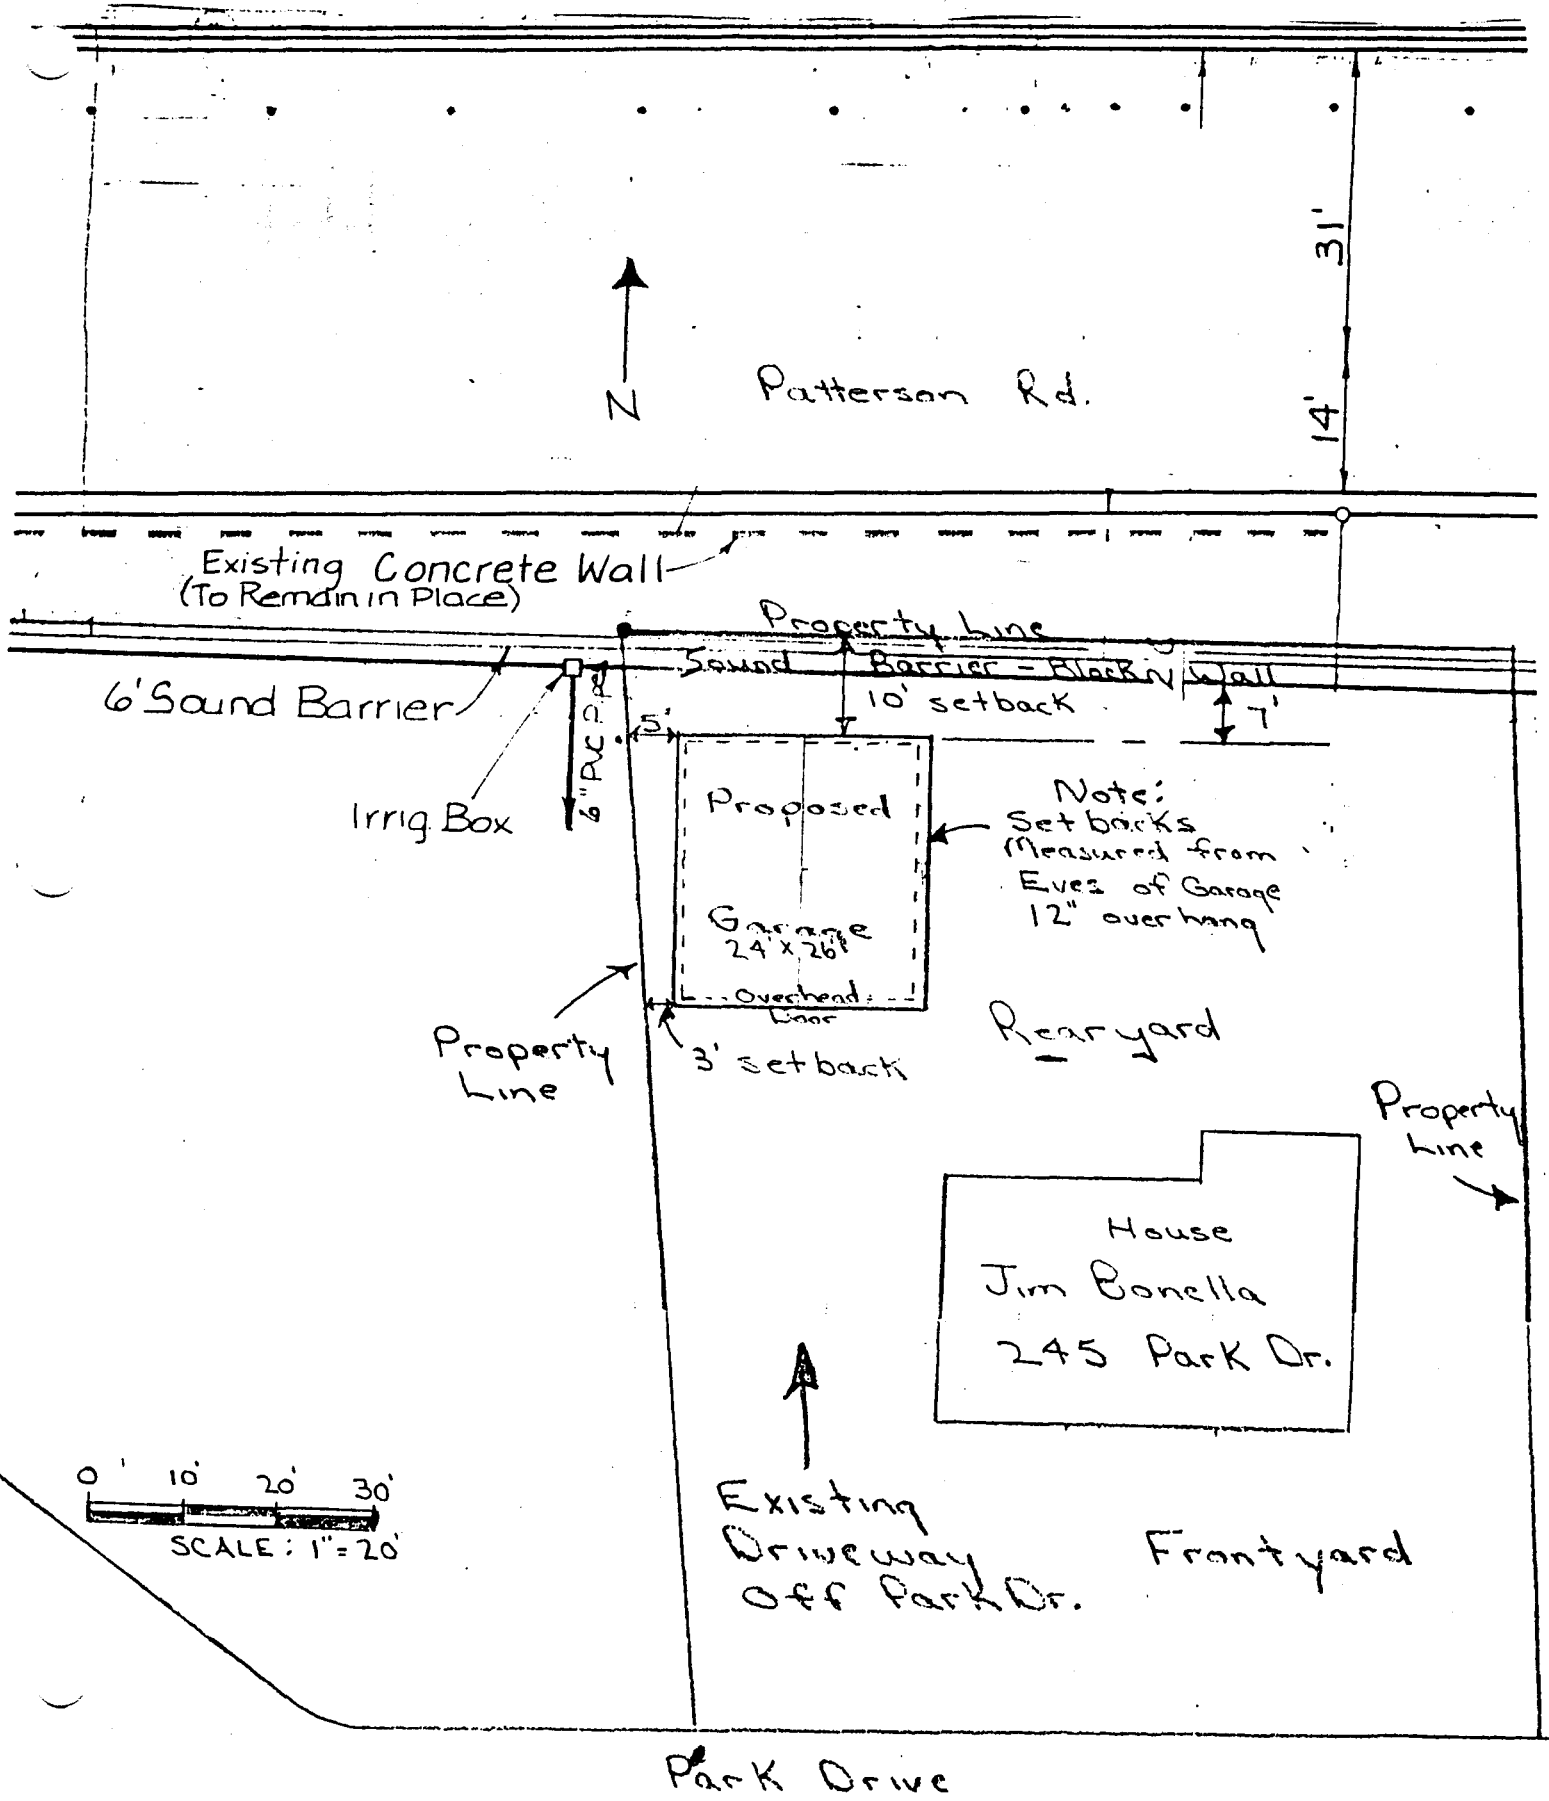 31'
N
Patterson Rd.
14'
Existing Concrete Wall
(To Remain in Place)
Property Line
Sound Barrier - Block Wall
6' Sound Barrier
10' setback
7'
5'
6" PVC Pipe
Irrig. Box
Proposed
Garage
24' x 26'
Overhead
Door
Note:
Setbacks
Measured from
Eves of Garage
12" overhang
Property
Line
3' setback
Rear yard
Property
Line
House
Jim Bonella
245 Park Dr.
0 10' 20' 30'
SCALE: 1"=20'
Existing
Driveway
off Park Dr.
Front yard
Park Drive